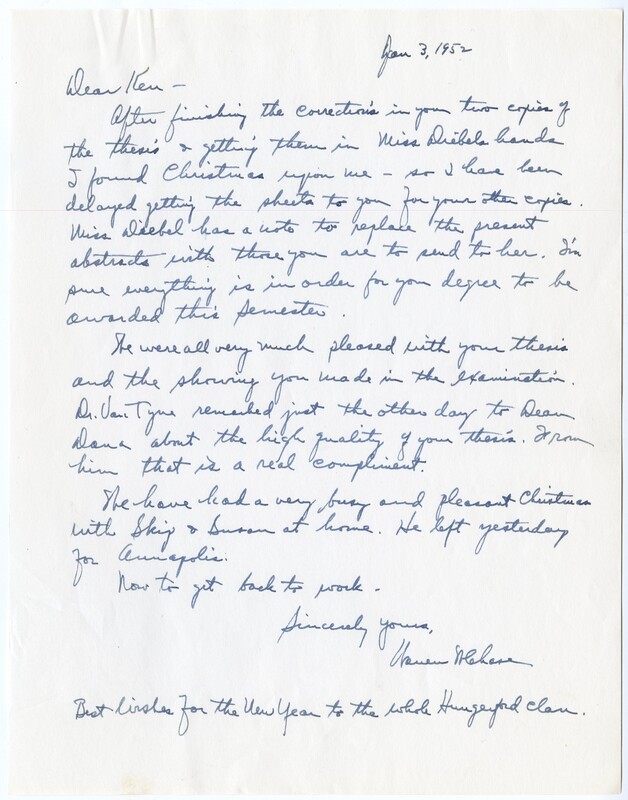 Jan 3, 1952
Dear Ken —
After finishing the corrections in your two copies of
the thesis & getting them in Miss Diebels hands
I found Christmas upon me — so I have been
delayed getting the sheets to you for your other copies.
Miss Diebel has a note to replace the present
abstracts with those you are to send to her. I'm
sure everything is in order for your degree to be
awarded this semester.
We were all very much pleased with your thesis
and the showing you made in the examination.
Dr. Van Tyne remarked just the other day to Dean
Dana about the high quality of your thesis. From
him that is a real compliment.
We have had a very busy and pleasant Christmas
with Skip & Susan at home. He left yesterday
for Annapolis.
Now to get back to work.
Sincerely yours,
Warren W Chase
Best Wishes for the New Year to the whole Hungerford Clan.